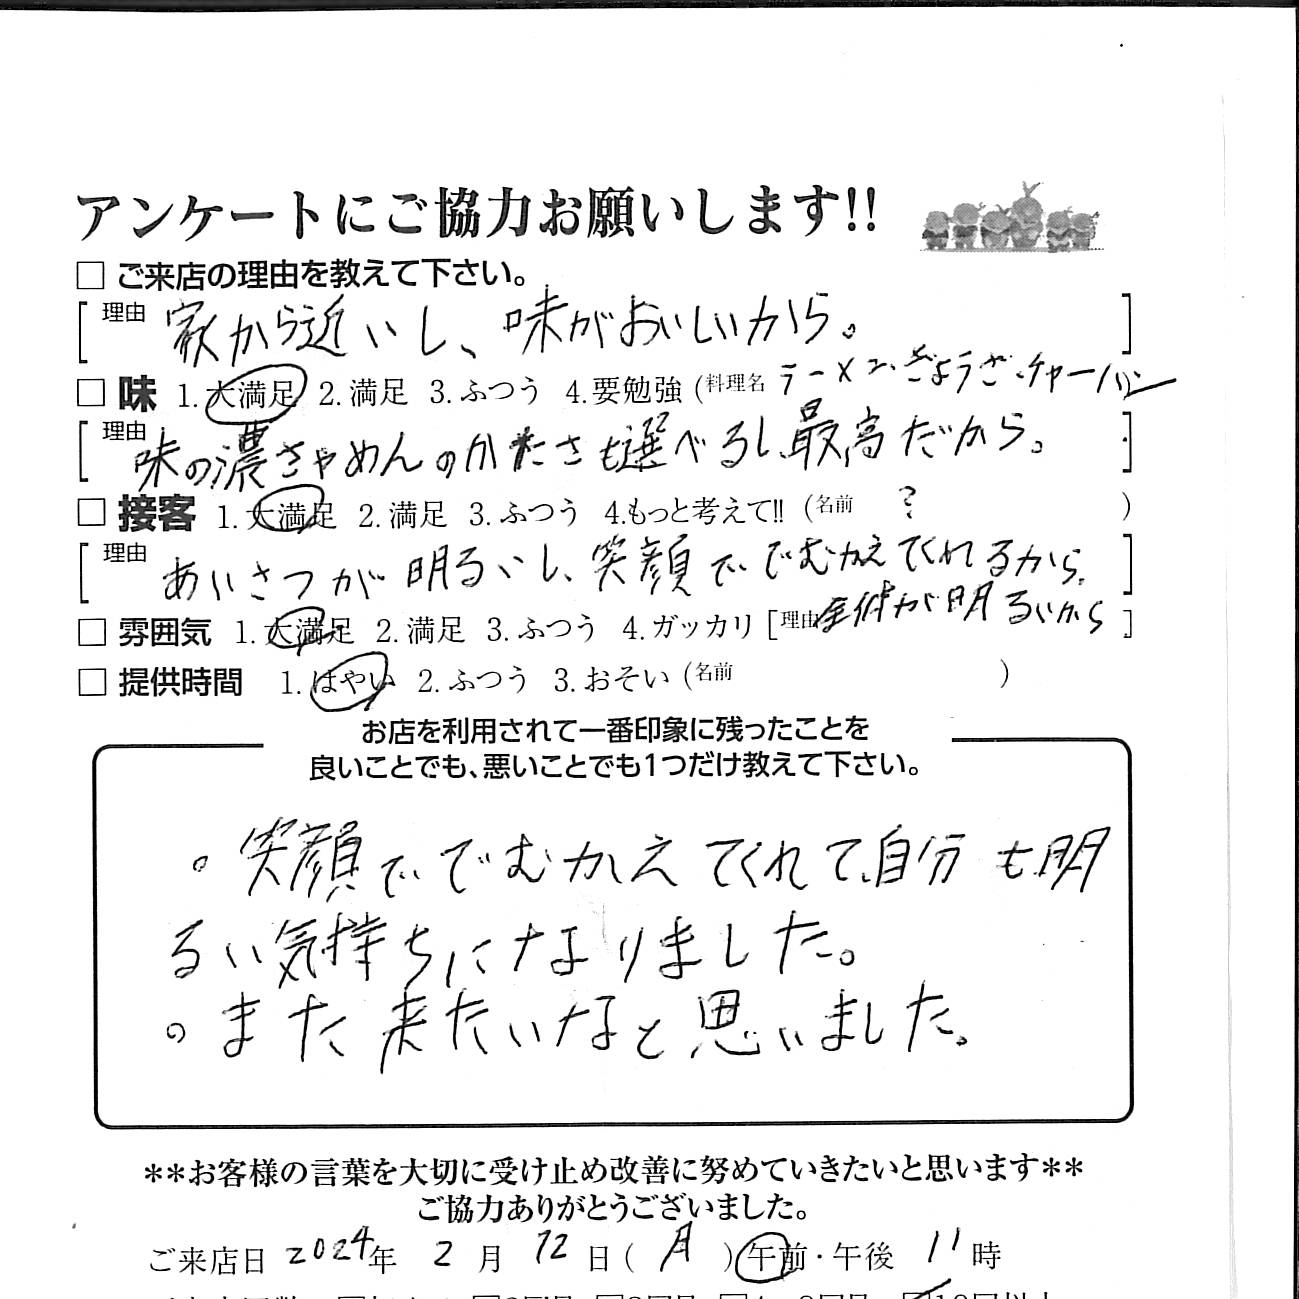 アンケートにご協力お願いします!!
□ ご来店の理由を教えて下さい。
理由 家から近いし、味がおいしいから。
□ 味 1.大満足 2.満足 3.ふつう 4.要勉強 (料理名 ラーメン・ぎょうざ・チャーハン
理由 味の濃さやめんのかたさも選べるし、最高だから。
□ 接客 1.大満足 2.満足 3.ふつう 4.もっと考えて!! (名前 ? )
理由 あいさつが明るいし、笑顔ででむかえてくれるから。
□ 雰囲気 1.大満足 2.満足 3.ふつう 4.ガッカリ [理由 全体が明るいから]
□ 提供時間 1.はやい 2.ふつう 3.おそい (名前 )
お店を利用されて一番印象に残ったことを
良いことでも、悪いことでも1つだけ教えて下さい。
。笑顔ででむかえてくれて、自分も明
るい気持ちになりました。
。また来たいなと思いました。
**お客様の言葉を大切に受け止め改善に努めていきたいと思います**
ご協力ありがとうございました。
ご来店日 2024年 2月 12日(月)午前・午後 11時